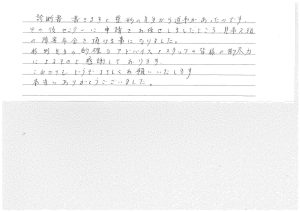 診断書 書きますと 契約の方から返事があったのです
その後センターに申請をお任せしましたところ 見事2級
の障害年金を頂ける事になりました。
的確なアドバイスとスタッフの皆様の御尽力
によるものと感謝しております
これからも どうぞよろしくお願いいたします
本当にありがとうございました。